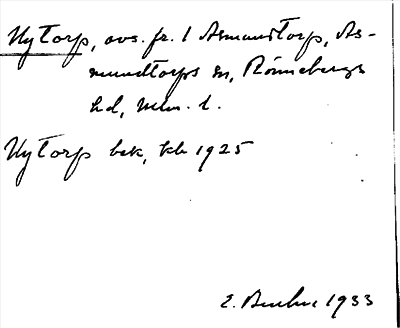 Nytorp, avs. fr. 1 Asmundtorp, As-
mundtorps sn, Rönnebergs
hd, Mlm. l.
Nytorp bek, kb 1925
E. 1933